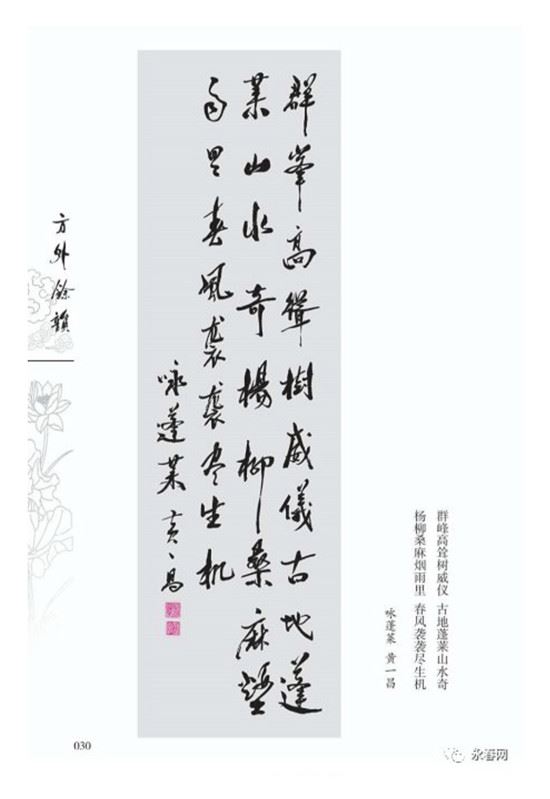 群峯高聳樹威儀古地蓬
莱山水奇楊柳桑麻煙
雨里春風袭袭尽生机
咏蓬莱 黄一昌
群峰高耸树威仪 古地蓬莱山水奇
杨柳桑麻烟雨里 春风袭袭尽生机
咏蓬莱 黄一昌
方外餘韻
030
永春网